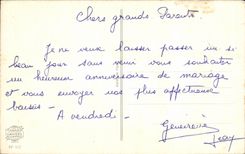 Chers grands Parents.
Je ne veux laisser passer un si
beau jour sans venir vous souhaiter
un heureux anniversaire de mariage
et vous envoyer nos plus affectueux
baisers -
A vendredi -
Geneviève
Jean